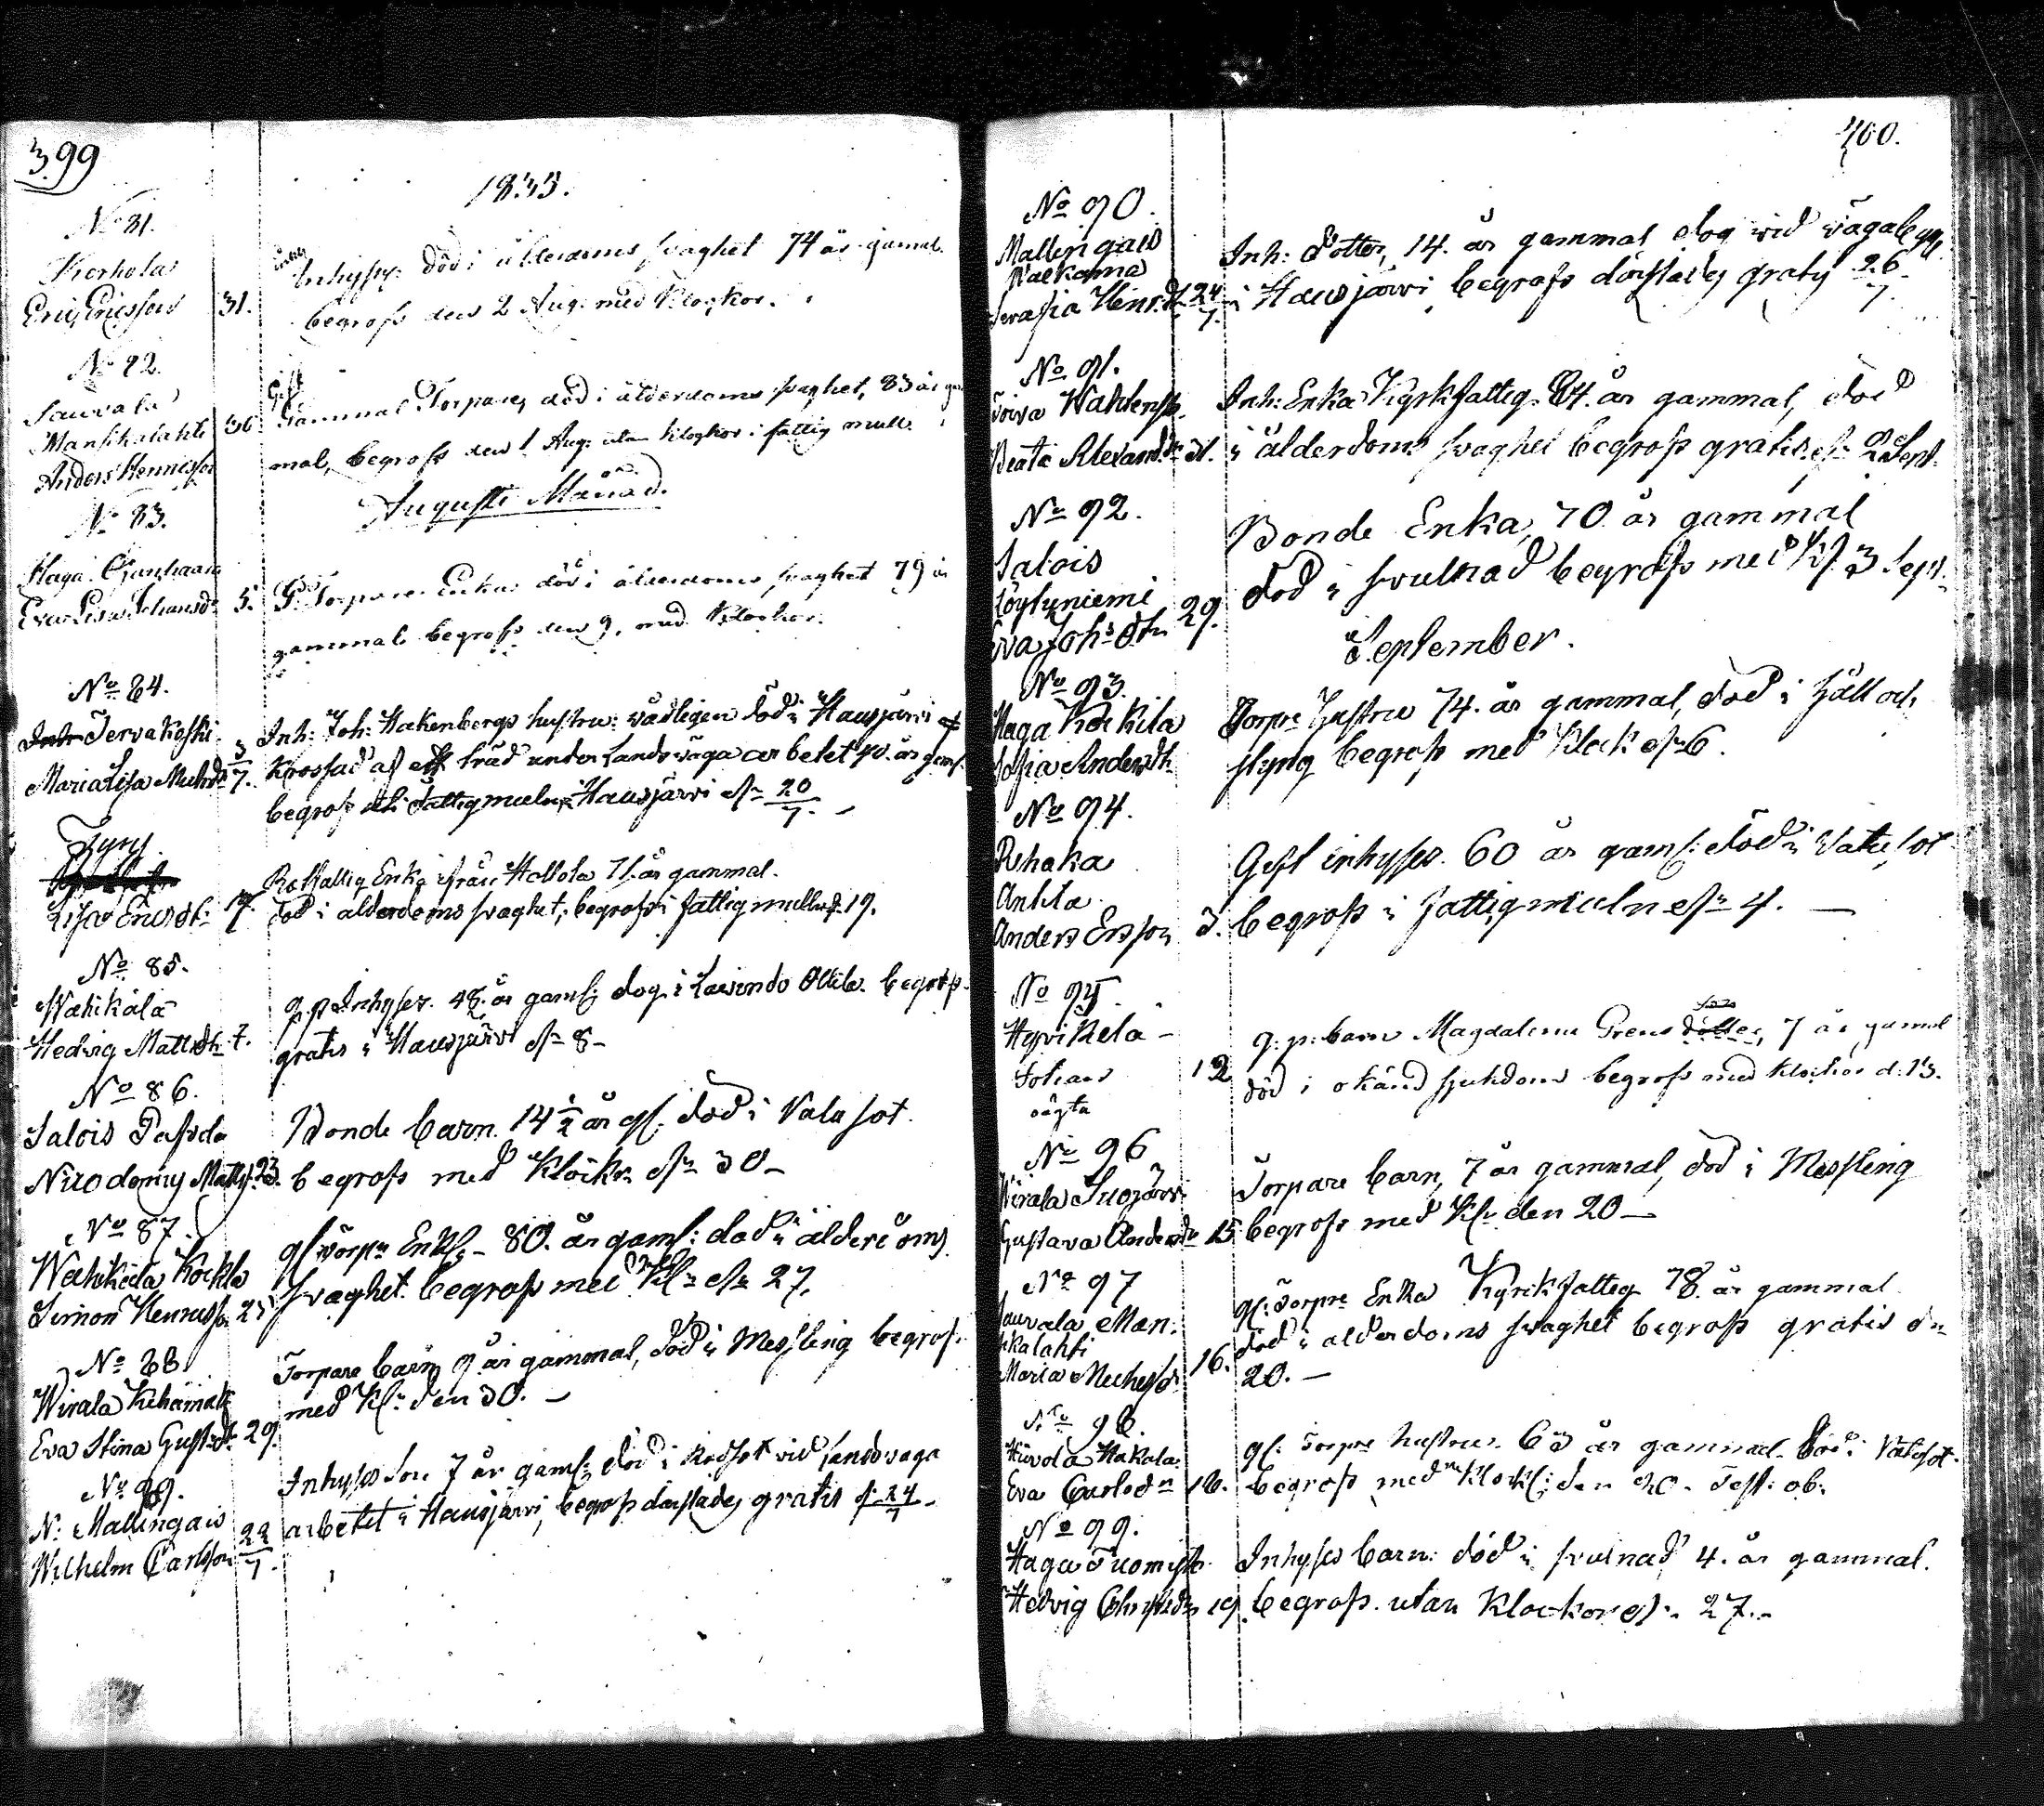 399
1833.
No 81.
Korhola
Eric Ericsson 31.
enkl.
Inhyses: död i ålderdoms svaghet 74 år gamal.
begrofs den 2 Aug. med klockor.
No 82.
Sauvala
Mansikalahti 30
Anders Hennesson
Gift
Gammal Torpare, död i ålderdoms svaghet, 83 år gam
mal, begrofs den 1 Aug. utan klockor i fattig mull.
Augusti Månad.
No 83.
Haga
Eva Lisa Johansdr 5.
Gl. Torpare Enka död i ålderdoms svaghet 79 år
gammal begrofs den 9. med Klockor.
No 84.
Inh: Tervakoski
Maria Lisa Michsdr 3/7.
Inh: Joh: Hakenbergs hustru: vådligen död i Hausjärvi af
Krossad af ett träd under Landsväga arbetet 40. år gaml.
begrofs i fattigmullen i Hausjärvi dn 20/7. –
Lisa Ericsdr 17.
Rotfattig Enka från Hollola 71. år gammal.
död i alderdoms svaghet, begrofs i fattigmullen d. 19.
No 85.
Wahikala
Hedvig Mattsdtr 7.
q. p. Inhyses. 48. år gaml: dog i Lavindo Ollila. begrofs.
gratis i Hausjärvi dn 8 –
No 86.
Salois Passola
Nicodemus Mattss. 23.
Bonde barn. 14 1/2 år gl: död i Vatu sot.
begrofs med Klockr dn 30 –
No 87.
Wahikala Kockla
Simon Henricss. 25
gl Torpr Enkl: – 80. år gaml: död i ålderdoms
svaghet. begrofs med Kl: dn 27.
No 88.
Wirala Kihämäki
Eva Stina Gustsdr. 29.
Torpare barn 9 år gammal, död i Messling begrofs.
med Kl: den 30. –
No 89.
N: Mallingais
Wilhelm Carlsson 22/7.
Inhyses Son 7 år gaml: död i Rödsot vid Landsväga
arbetet i Hausjärvi, begrofs dersades gratis d: 24/7 –
400.
No 90.
Mallingais
Walkama
Serafia Hinr.dr 24/7.
Inh: dotter, 14. år gammal dog vid vägabygg.
i Hausjärvi begrofs dörstädes gratis 26/7.
No 91.
Toiva Wahlens
Beata Alexand.dr 31.
Inh: Enka Kyrkfattig. 84. år gammal, död
i ålderdoms svaghet begrofs gratis dn 2 Sept.
No 92.
Salois
Löytyniemi
Eva Johsdtr 29.
Bonde Enka, 70 år gammal
död i svulnad begrofs med Kl 3 Sept.
September.
No 93.
Haga Kockila
Sofia Andersdtr
Torpr Hustru 74. år gammal, död i håll och
styng begrofs med Klock dn 6.
No 94.
Rehaka
Anttila
Anders Ersson 3.
Gift inhyses. 60 år gaml: död i Vatusot
begrofs i fattigmullen dn 4. –
No 95.
Hyvikelä –
Johan
oägta 12
q: p: barn Magdalena Grens dotter son, 7 år gamal
död i okänd sjukdom begrofs med klockor d. 13.
No 96
Wirala Suojärvi
Gustava Andersdr 15
Torpare barn, 7 år gammal, död i Messling
begrofs med Kl: den 20 –
No 97
Sauvala Man:
sikalahti
Maria Michelsdr 16.
gl: Torpre Enka Kyrkfattig 78. år gammal
död i alderdoms svaghet begrofs gratis dn
20. –
No 98.
Hiivola Hakala
Eva Carlsdr 16.
gl: Torpre hustru. 63 år gammal. död i Vatusot.
begrofs med Klock: den 20 – Test: ob:
No 99.
Haga Tuomisto
Hedvig Christsdr 19.
Inhyses barn: död i svulnad 4. år gammal.
begrofs. utan Klockor dn 27. –